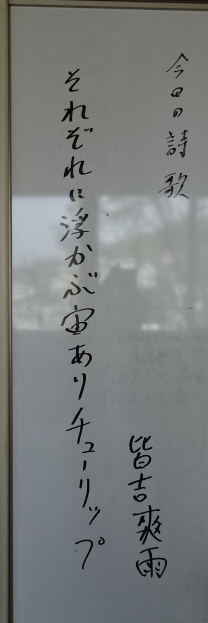 今日の詩歌
それぞれに浮かぶ宙ありチューリップ
皆吉爽雨